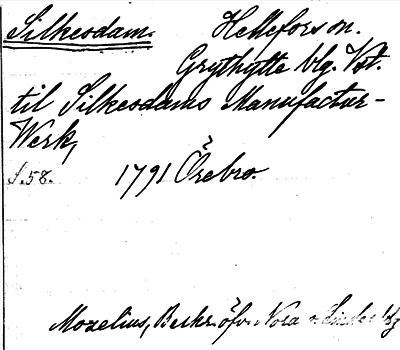 Silkesdam. Hellefors sn.
Grythytte blg. Vst.
til Silkesdams Manufactur-
Werk,
S. 58. 1791 Örebro.
Mozelius, Beskr. öfv. Nora o. Lindes